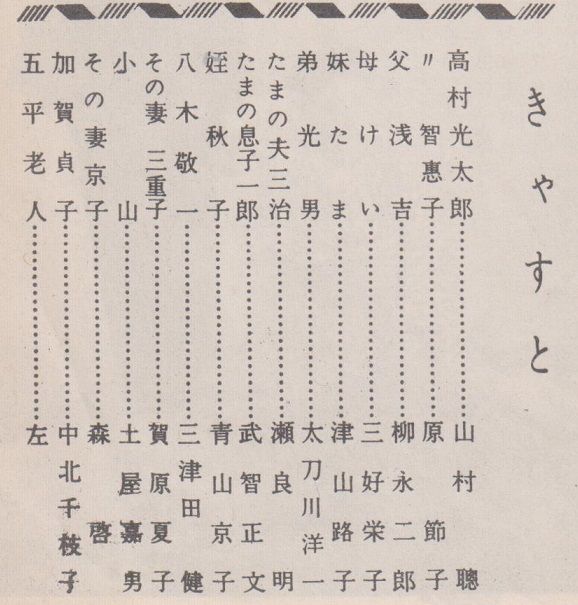 きゃすと
高村光太郎…………山村聰
〃智惠子…………原節子
父浅吉…………柳永二郎
母けい…………三好栄子
妹たま…………津山路子
弟光男…………太刀川洋一
たまの夫三治…………瀬良明
たまの息子一郎…………武智正文
姪秋子…………青山京子
八木敬一…………三津田健
その妻三重子…………賀原夏子
小山…………土屋嘉男
その妻京子…………森啓子
加賀貞子…………中北千枝子
五平老人…………左